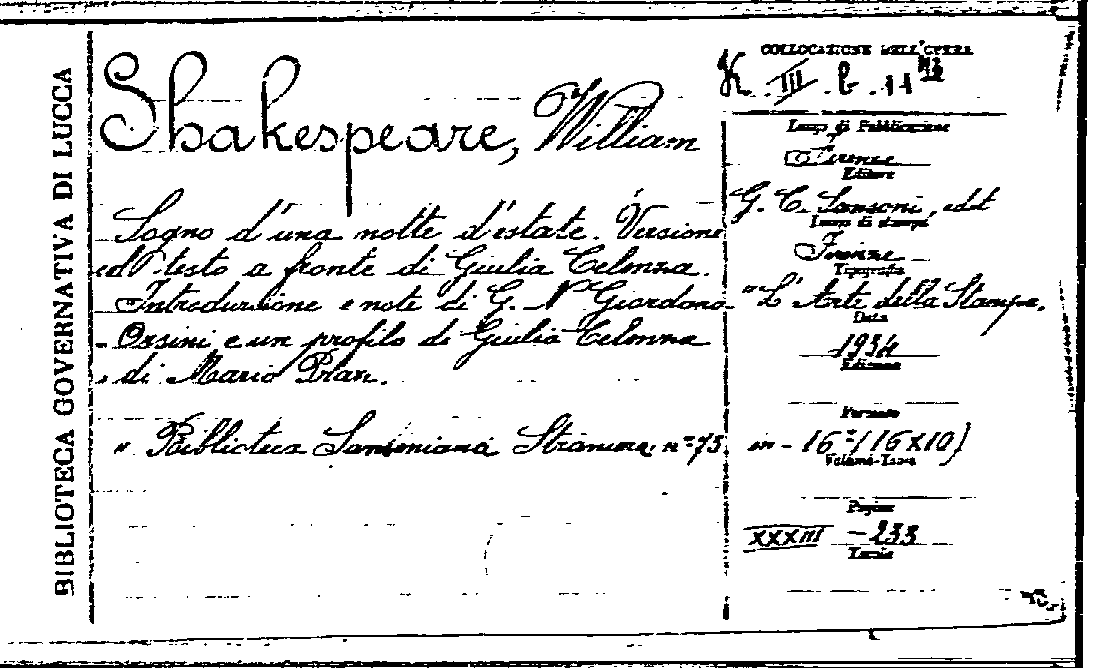 BIBLIOTECA GOVERNATIVA DI LUCCA
Shakespeare, William
Sogno d'una notte d'estate. Versione
ed testo a fronte di Giulia Celenza.
Introduzione e note di G. N. Giordano-
Orsini e un profilo di Giulia Celenza
di Mario Praz.
" Biblioteca Sansoniana Straniera n° 75
COLLOCAZIONE DELL'OPERA
K. III. b. 11
Luogo di Pubblicazione
Firenze
Editore
G. C. Sansoni, edit
Luogo di stampa
Firenze
Tipografia
"L'Arte della Stampa.
Data
1934
Edizione
Formato
in - 16° (16x10)
Volume-Tomo
Pagine
XXXIII - 233